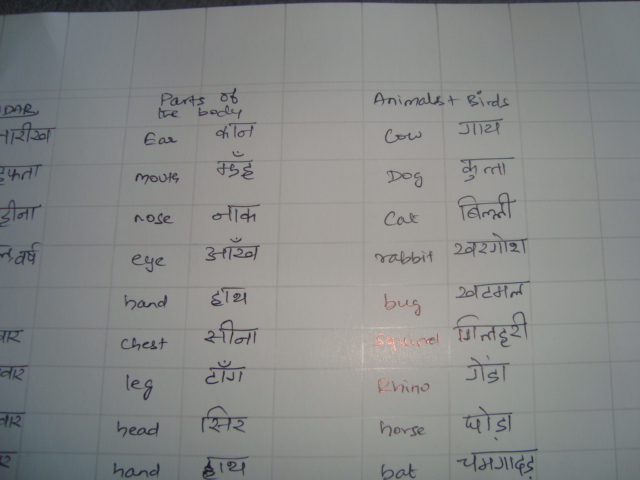 Parts of
the body
Animals + Birds
तारीख Ear कान Cow गाय
हफ्ता mouth मुँह Dog कुत्ता
nose नाक Cat बिल्ली
वर्ष eye आँख rabbit खरगोश
hand हाथ bug खटमल
chest सीना Squirrel गिलहरी
leg टाँग Rhino गेंडा
head सिर horse घोड़ा
hand हाथ bat चमगादड़